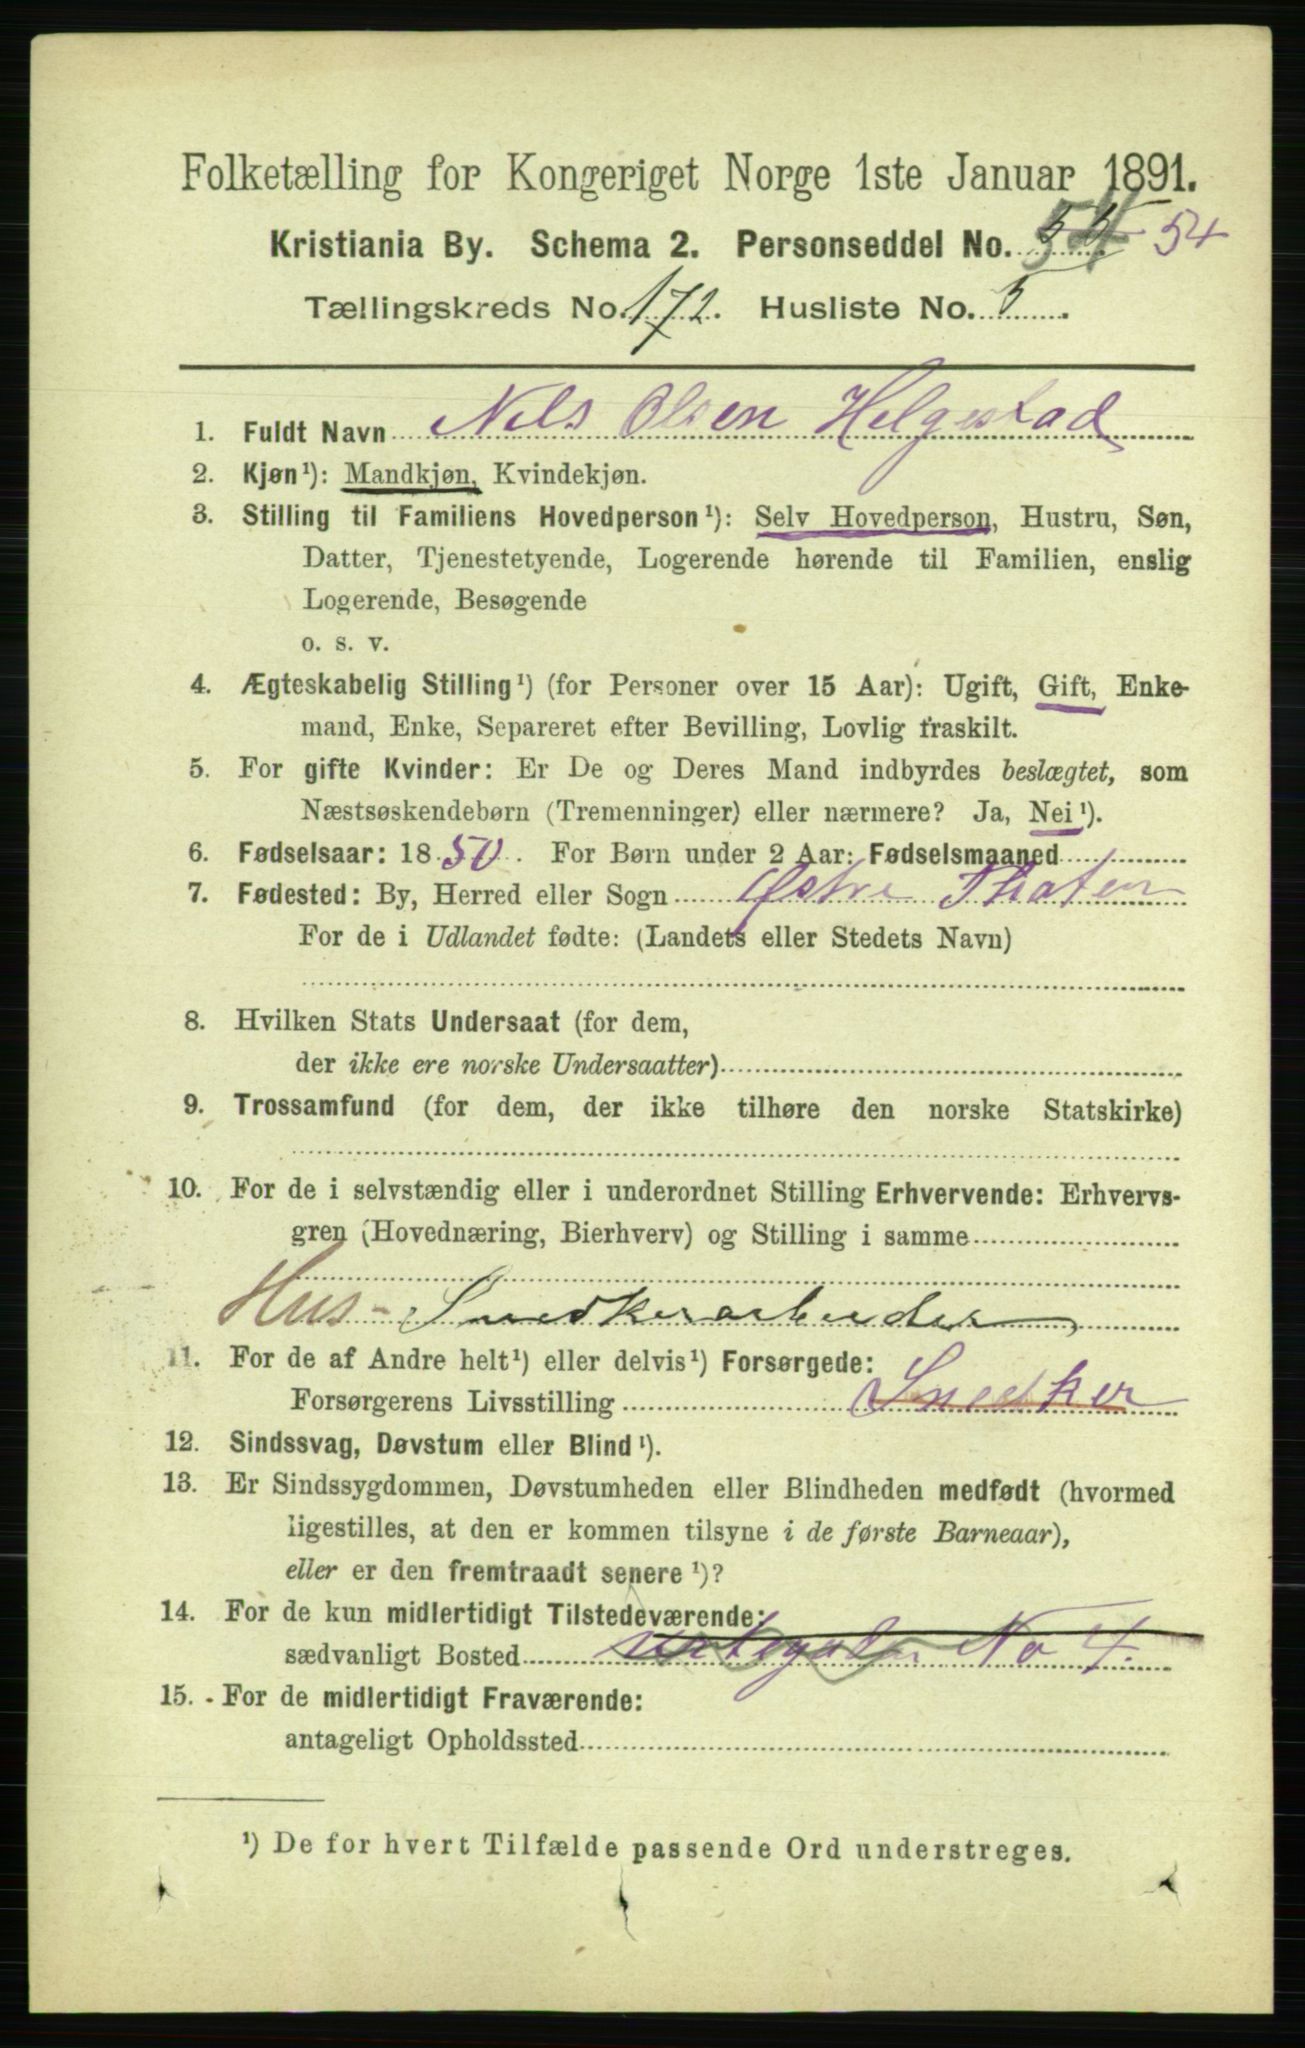 Folketælling for Kongeriget Norge 1ste Januar 1891.
Kristiania By. Schema 2. Personseddel No. 54 54
Tællingskreds No. 172. Husliste No. 5.
1. Fuldt Navn Nels Olsen Helgestad
2. Kjøn¹): Mandkjøn, Kvindekjøn.
3. Stilling til Familiens Hovedperson¹): Selv Hovedperson, Hustru, Søn,
Datter, Tjenestetyende, Logerende hørende til Familien, enslig
Logerende, Besøgende
o. s. v.
4. Ægteskabelig Stilling¹) (for Personer over 15 Aar): Ugift, Gift, Enke-
mand, Enke, Separeret efter Bevilling, Lovlig fraskilt.
5. For gifte Kvinder: Er De og Deres Mand indbyrdes beslægtet, som
Næstsøskendebørn (Tremenninger) eller nærmere? Ja, Nei¹).
6. Fødselsaar: 1850. For Børn under 2 Aar: Fødselsmaaned
7. Fødested: By, Herred eller Sogn Østre Thoten
For de i Udlandet fødte: (Landets eller Stedets Navn)
8. Hvilken Stats Undersaat (for dem,
der ikke ere norske Undersaatter)
9. Trossamfund (for dem, der ikke tilhøre den norske Statskirke)
10. For de i selvstændig eller i underordnet Stilling Erhvervende: Erhvervs-
gren (Hovednæring, Bierhverv) og Stilling i samme
Hus- Snedkerarbeider
11. For de af Andre helt¹) eller delvis¹) Forsørgede:
Forsørgerens Livsstilling Snedker
12. Sindssvag, Døvstum eller Blind¹).
13. Er Sindssygdommen, Døvstumheden eller Blindheden medfødt (hvormed
ligestilles, at den er kommen tilsyne i de første Barneaar),
eller er den fremtraadt senere¹)?
14. For de kun midlertidigt Tilstedeværende:
sædvanligt Bosted No 4.
15. For de midlertidigt Fraværende:
antageligt Opholdssted
¹) De for hvert Tilfælde passende Ord understreges.